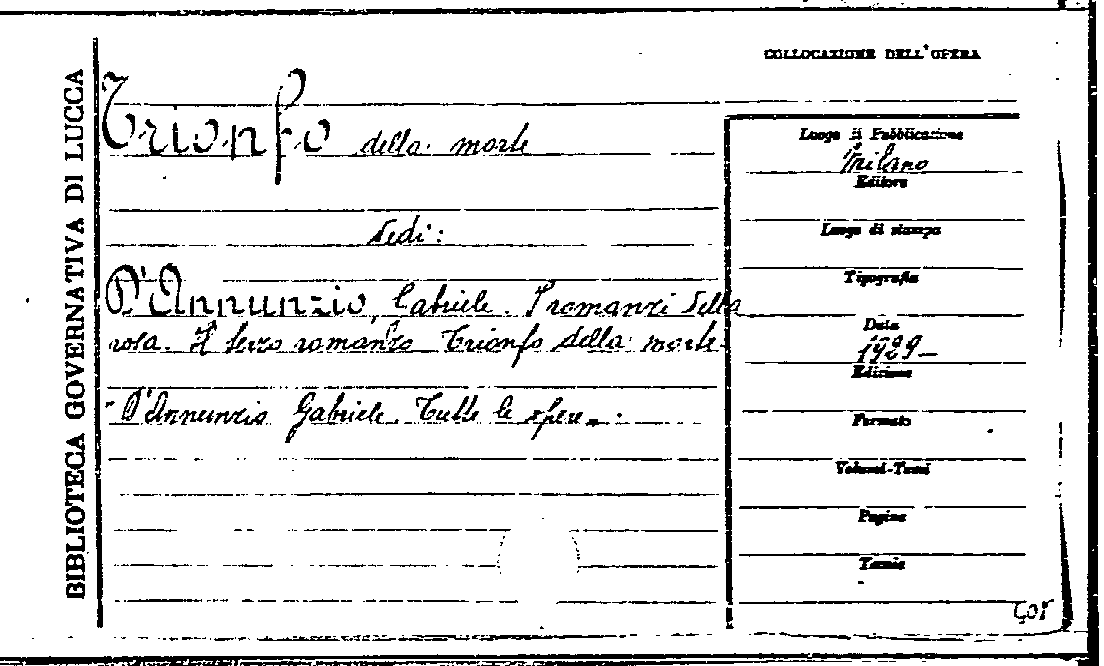 BIBLIOTECA GOVERNATIVA DI LUCCA
COLLOCAZIONE DELL'OPERA
Trionfo della morte
Vedi:
D'Annunzio, Gabriele. I romanzi della
rosa. Il terzo romanzo Trionfo della morte.
D'Annunzio Gabriele. Tutte le opere.
Luogo di Pubblicazione
Milano
Editore
Luogo di stampa
Tipografia
Data
1929
Edizione
Formato
Volumi-Tomi
Pagine
Tavole